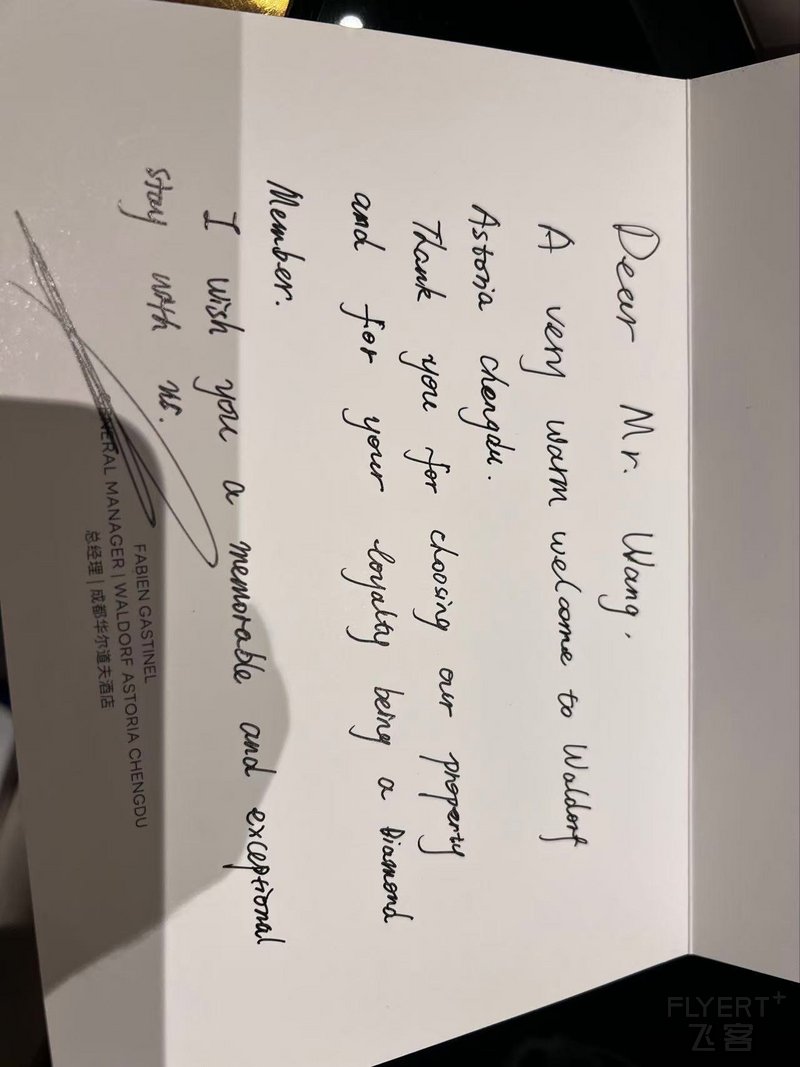 Dear Mr. Wang.
A very warm welcome to Waldorf
Astoria chengdu.
Thank you for choosing our property
and for your loyalty being a Diamond
Member.
I wish you a memorable and exceptional
stay with us.
FABIEN GASTINEL
GENERAL MANAGER | WALDORF ASTORIA CHENGDU
总经理 | 成都华尔道夫酒店
FLYERT+
飞客